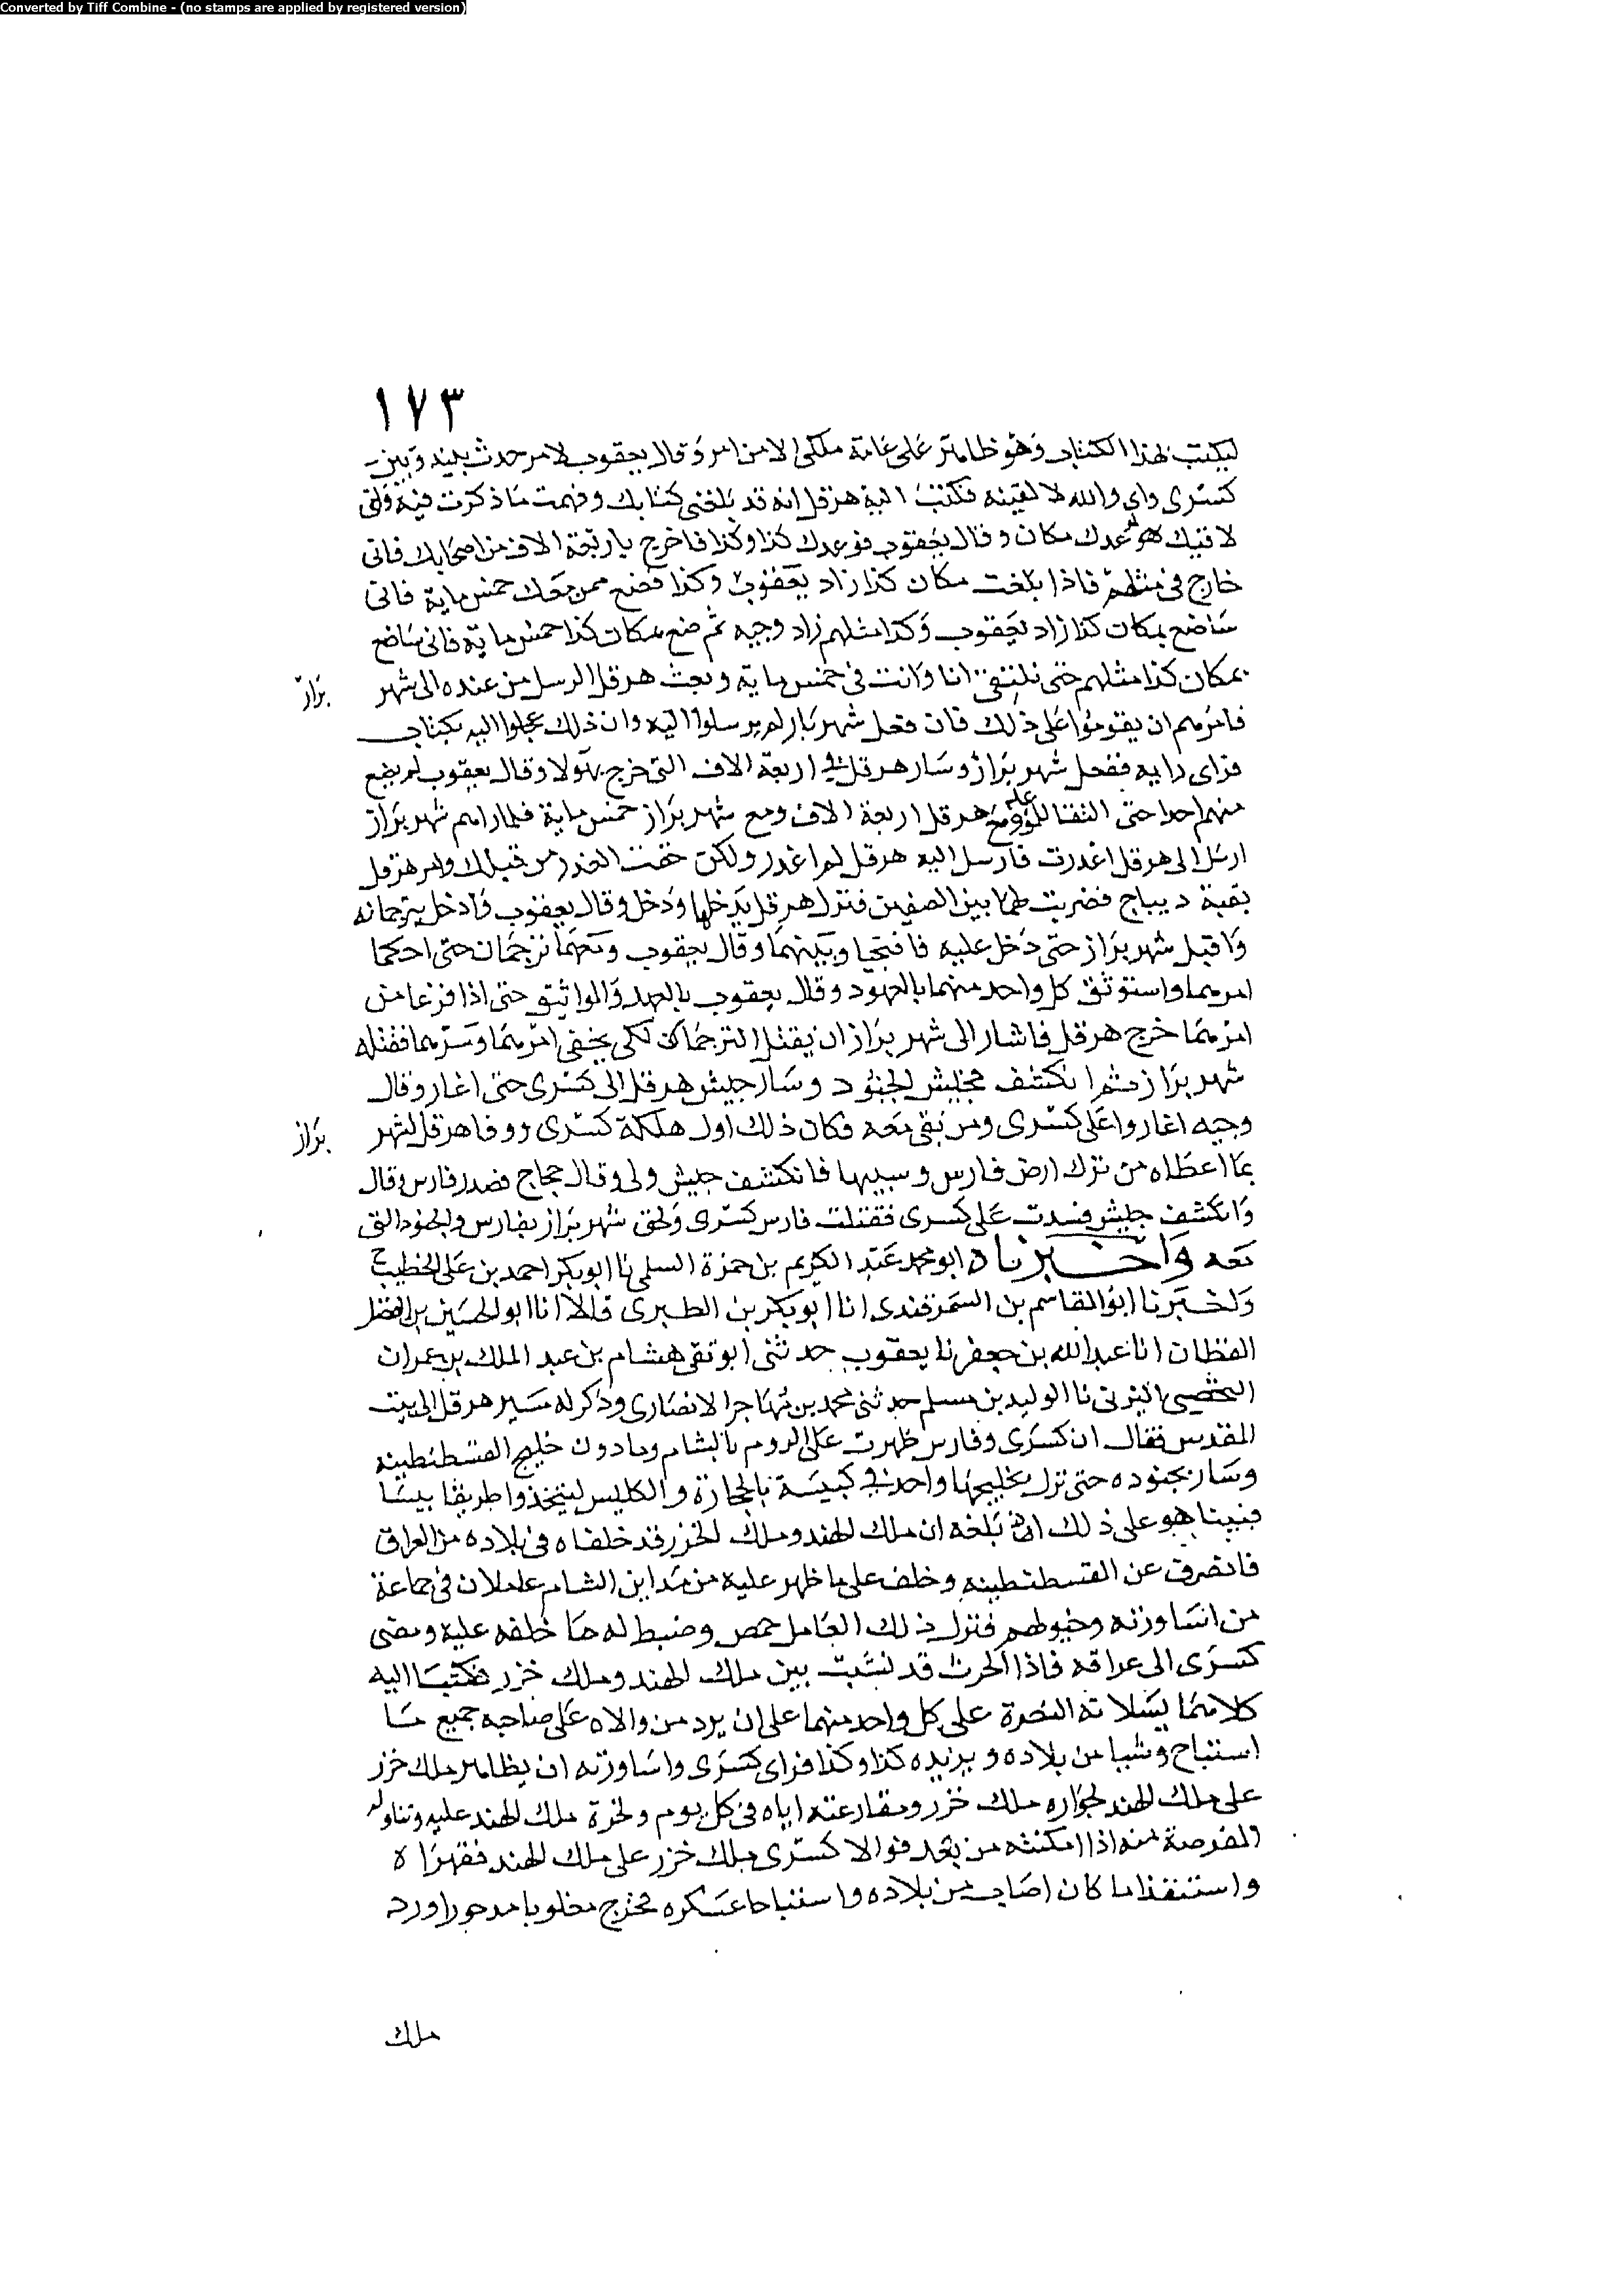 Converted by Tiff Combine - (no stamps are applied by registered version)
١٧٣
ليكتب بهذا الكتاب وهو ظاهر على عامة ملكى الا من امر وقال يعقوب لامر حدث بينه وبين
كسرى واى والله لالقينه فكتب اليه هرقل انه قد بلغنى كتابك وفهمت ما ذكرت فيه وانى
لاقيك فموعدك مكان وقال يعقوب فوعدك كذا وكذا فاخرج باربعة الاف من اصحابك فانى
خارج فى مثلهم فاذا بلغت مكان كذا زاد يعقوب وكذا فضع ممن معك خمس ماية فانى
ساضع بمكان كذا زاد يعقوب وكذا مثلهم زاد وجيه ثم ضع بمكان كذا خمس ماية فانى ساضع
بمكان كذا مثلهم حتى نلتقى انا وانت فى خمس ماية وبعث هرقل الرسل من عنده الى شهر براز
فامرهم ان يقوموا على ذلك فان فعل شهر براز لم يرسلوا اليه وان ذلك عجلوا اليه بكتاب
فراى رايه ففعل شهر براز وسار هرقل فى اربعة الاف التى خرج بهولا وقال يعقوب لم يضع
منهم احدا حتى التقيا للموضع ومع هرقل اربعة الاف ومع شهر براز خمس ماية فلما راهم شهر براز
ارسل الى هرقل اغدرت فارسل اليه هرقل لم اغدر ولكن خفت الغدر من قبلك وامر هرقل
بقبة ديباج فضربت لهما بين الصفين فنزل هرقل يدخلها ودخل وقال يعقوب فادخل بترجمانه
واقبل شهر براز حتى دخل عليه فانتجيا وبينهما وقال يعقوب ومعهما ترجمان حتى احكما
امرهما واستوثق كل واحد منهما بالعهود وقال يعقوب بالعهد والمواثيق حتى اذا فرغا من
امرهما خرج هرقل فاشار الى شهر براز ان يقتل الترجمان لكى يخفى امرهما وسرهما فقتله
شهر براز ثم انكشف فجيش الجنود وسار جيش هرقل الى كسرى حتى اغار وقال
وجيه اغاروا على كسرى ومن بقى معه فكان ذلك اول هلكة كسرى ووفا هرقل لشهر براز
بما اعطاه من ترك ارض فارس وسبيها فانكشف جيش ولى وقال حجاج فصدر فارس وقال
وانكشف جيش فسدت على كسرى فقتلت فارس كسرى ولحق شهر براز بفارس والجنود التى
معه واخبرناه ابو محمد عبد الكريم بن حمزة السلمى نا ابو بكر احمد بن على الخطيب
واخبرنا ابو القاسم بن السمرقندى انا ابو بكر بن الطبرى قالا انا ابو الحسين بن الفضل
القطان انا عبد الله بن جعفر نا يعقوب حدثنى ابو تقى هشام بن عبد الملك بن عمران
اليحصبى اليزنى نا الوليد بن مسلم حدثنى محمد بن مهاجر الانصارى وذكر له مسير هرقل الى بيت
المقدس فقال ان كسرى وفارس ظهرت على الروم بالشام وما دون خليج القسطنطينه
وسار بجنوده حتى نزل بخليجها واخذ فى كبيسة بالحجارة والكليس ليتخذوا طريقا يبسا
فبينا هو على ذلك اذ بلغه ان ملك الهند وملك الخزر قد خلفاه فى بلاده من العراق
فانصرف عن القسطنطينه وخلف على ما ظهر عليه من مداين الشام عاملان فى جماعة
من اساورته وخيولهم فنزل ذلك العامل حمص وضبط له ما خلفه عليه ومضى
كسرى الى عراقه فاذا الحرب قد نشبت بين ملك الهند وملك خزر فكتبا اليه
كلاهما يسلانه النصرة على كل واحد منهما على ان يرد من والاه على صاحبه جميع ما
استباح وسبا من بلاده ويزيده كذا وكذا فراى كسرى واساورته ان يظاهر ملك خزر
على ملك الهند لجواره ملك خزر ومقارعته اياه فى كل يوم ولخرة ملك الهند عليه وتناوله
الفرصة منه اذا امكنته من بعد فوالا كسرى ملك خزر على ملك الهند فقهراه
واستنقذا ما كان اصاب من بلاده واستباحا عسكره فخرج مغلوبا مدحورا ورد
ملك